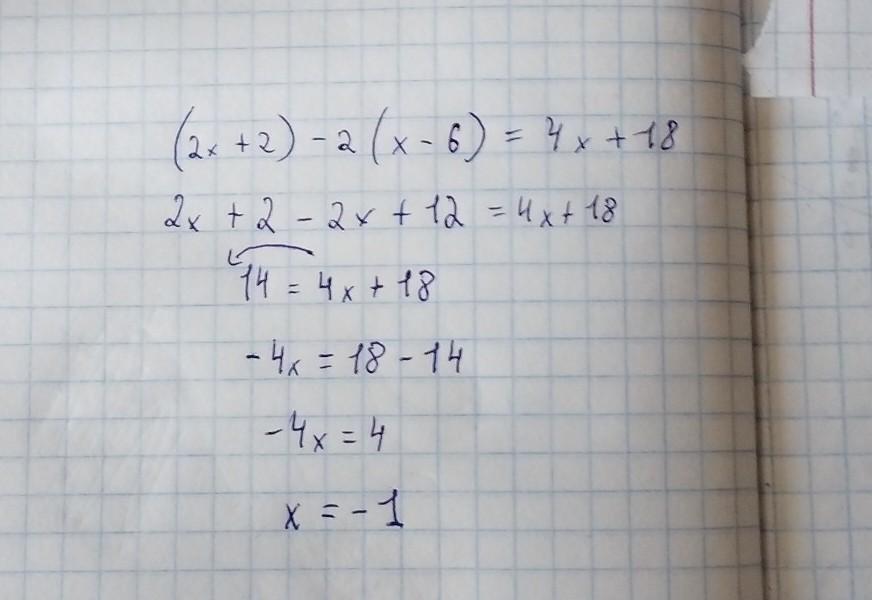 (2x + 2) - 2 (x - 6) = 4x + 18
2x + 2 - 2x + 12 = 4x + 18
14 = 4x + 18
-4x = 18 - 14
-4x = 4
x = -1